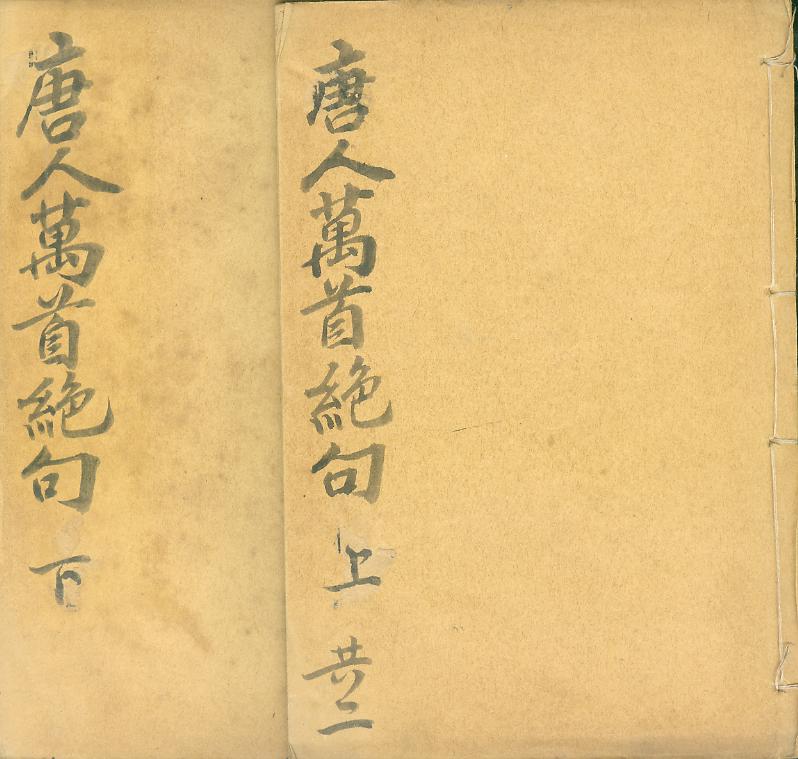 唐人萬首絕句 上 共二
唐人萬首絕句 下